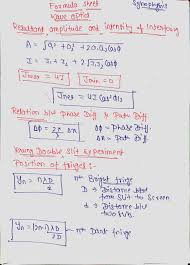 Formula Sheet
Wave optics
Resultant amplitude and intensity of interfering
A = √a₁² + a₂² + 2a₁a₂cosϕ
I = I₁ + I₂ + 2√I₁I₂ cosϕ
Imax = 4I Imin = 0
Inet = 4I cos² ϕ/2
Relation b/w Phase Diff & Path Diff
Δϕ = 2π/λ Δx Δϕ = Phase Diff.
Δx = Path Diff.
Young Double Slit Experiment
Position of fringes:
yn = nλD/d n = Bright fringe
D → Distance
from slit to Screen
d → Distance b/w
two
n → Dark fringe